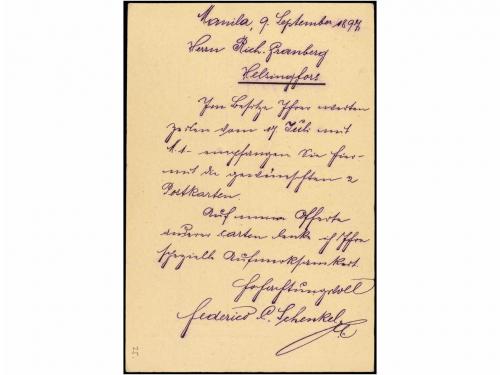 Manila, 9. September 1897
Herrn Rich. Granberg
Helsingfors
Im Besitze Ihrer werten
Zeilen vom 17 Juli mit
M.1.- empfangen Sie hier-
mit die gewünschten 2
Postkarten.
Auf meine Offerte
anderer Carten lenke ich Ihre
spezielle Aufmerksamkeit.
Hochachtungsvoll
Federico C. Schenkel